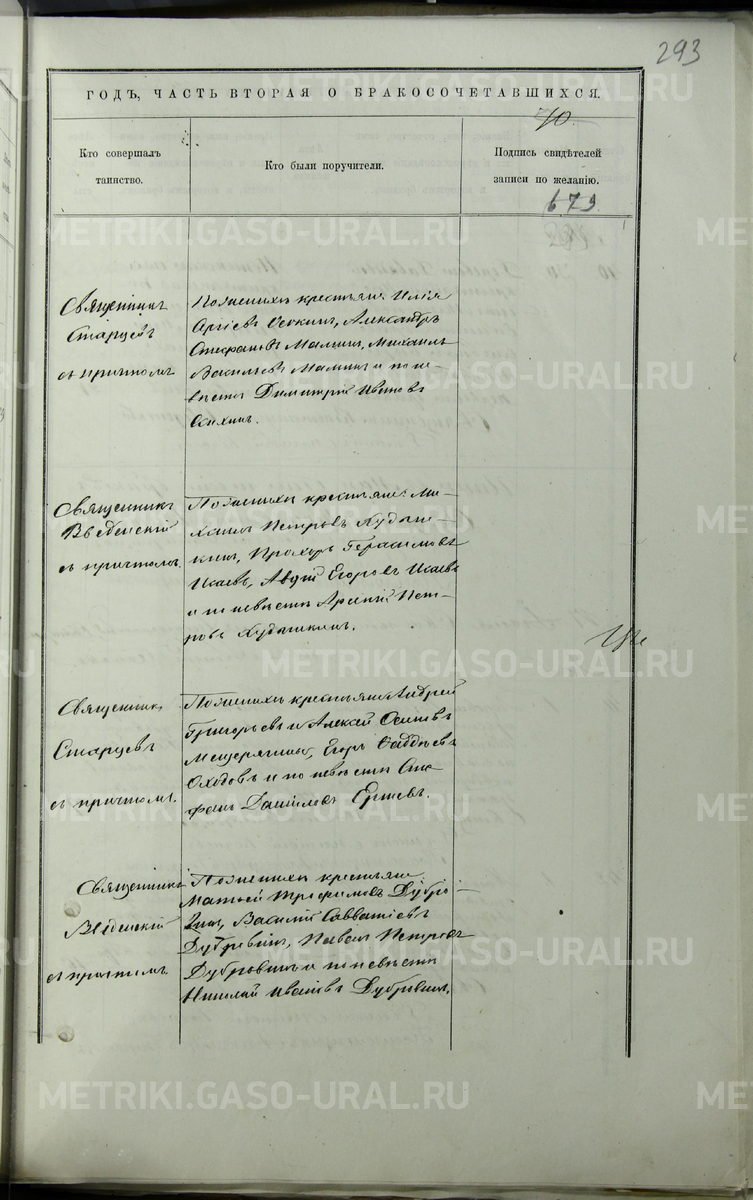 293
ГОДЪ, ЧАСТЬ ВТОРАЯ О БРАКОСОЧЕТАВШИХСЯ.
70.
Кто совершалъ
таинство.
Кто были поручители.
Подпись свидѣтелей
записи по желанію.
679.
Священникъ
Старцевъ
съ причтомъ
По женихѣ крестьяне Илія
Александръ
Стефановъ Малыхъ, Михаилъ
Васильевъ и по не-
вѣстѣ Димитрій Ивановъ
Священникъ
Введенскій
съ причтомъ.
По женихѣ крестьяне: Ми-
хаилъ Петровъ Кудаш-
кинъ, Прохоръ Герасимовъ
Исаевъ, Авдій Егоровъ Исаевъ
и по невѣстѣ Арсеній Пет-
ровъ Кудашкинъ.
Священникъ
Старцевъ
съ причтомъ.
По женихѣ крестьяне Андрей
Григорьевъ и Алексѣй Осиповъ
Мещерягины, Егоръ Фаддѣевъ
Оходовъ и по невѣстѣ Сте-
фанъ Даніиловъ Ершевъ.
Священникъ
Введенскій
съ причтомъ
По женихѣ крестьяне:
Матѳей Трофимовъ Дубро-
винъ, Василій Савватіевъ
Дубровинъ, Павелъ Петровъ
Дубровинъ и по невѣстѣ
Николай Ивановъ Дубровинъ.
METRIKI.GASO-URAL.RU